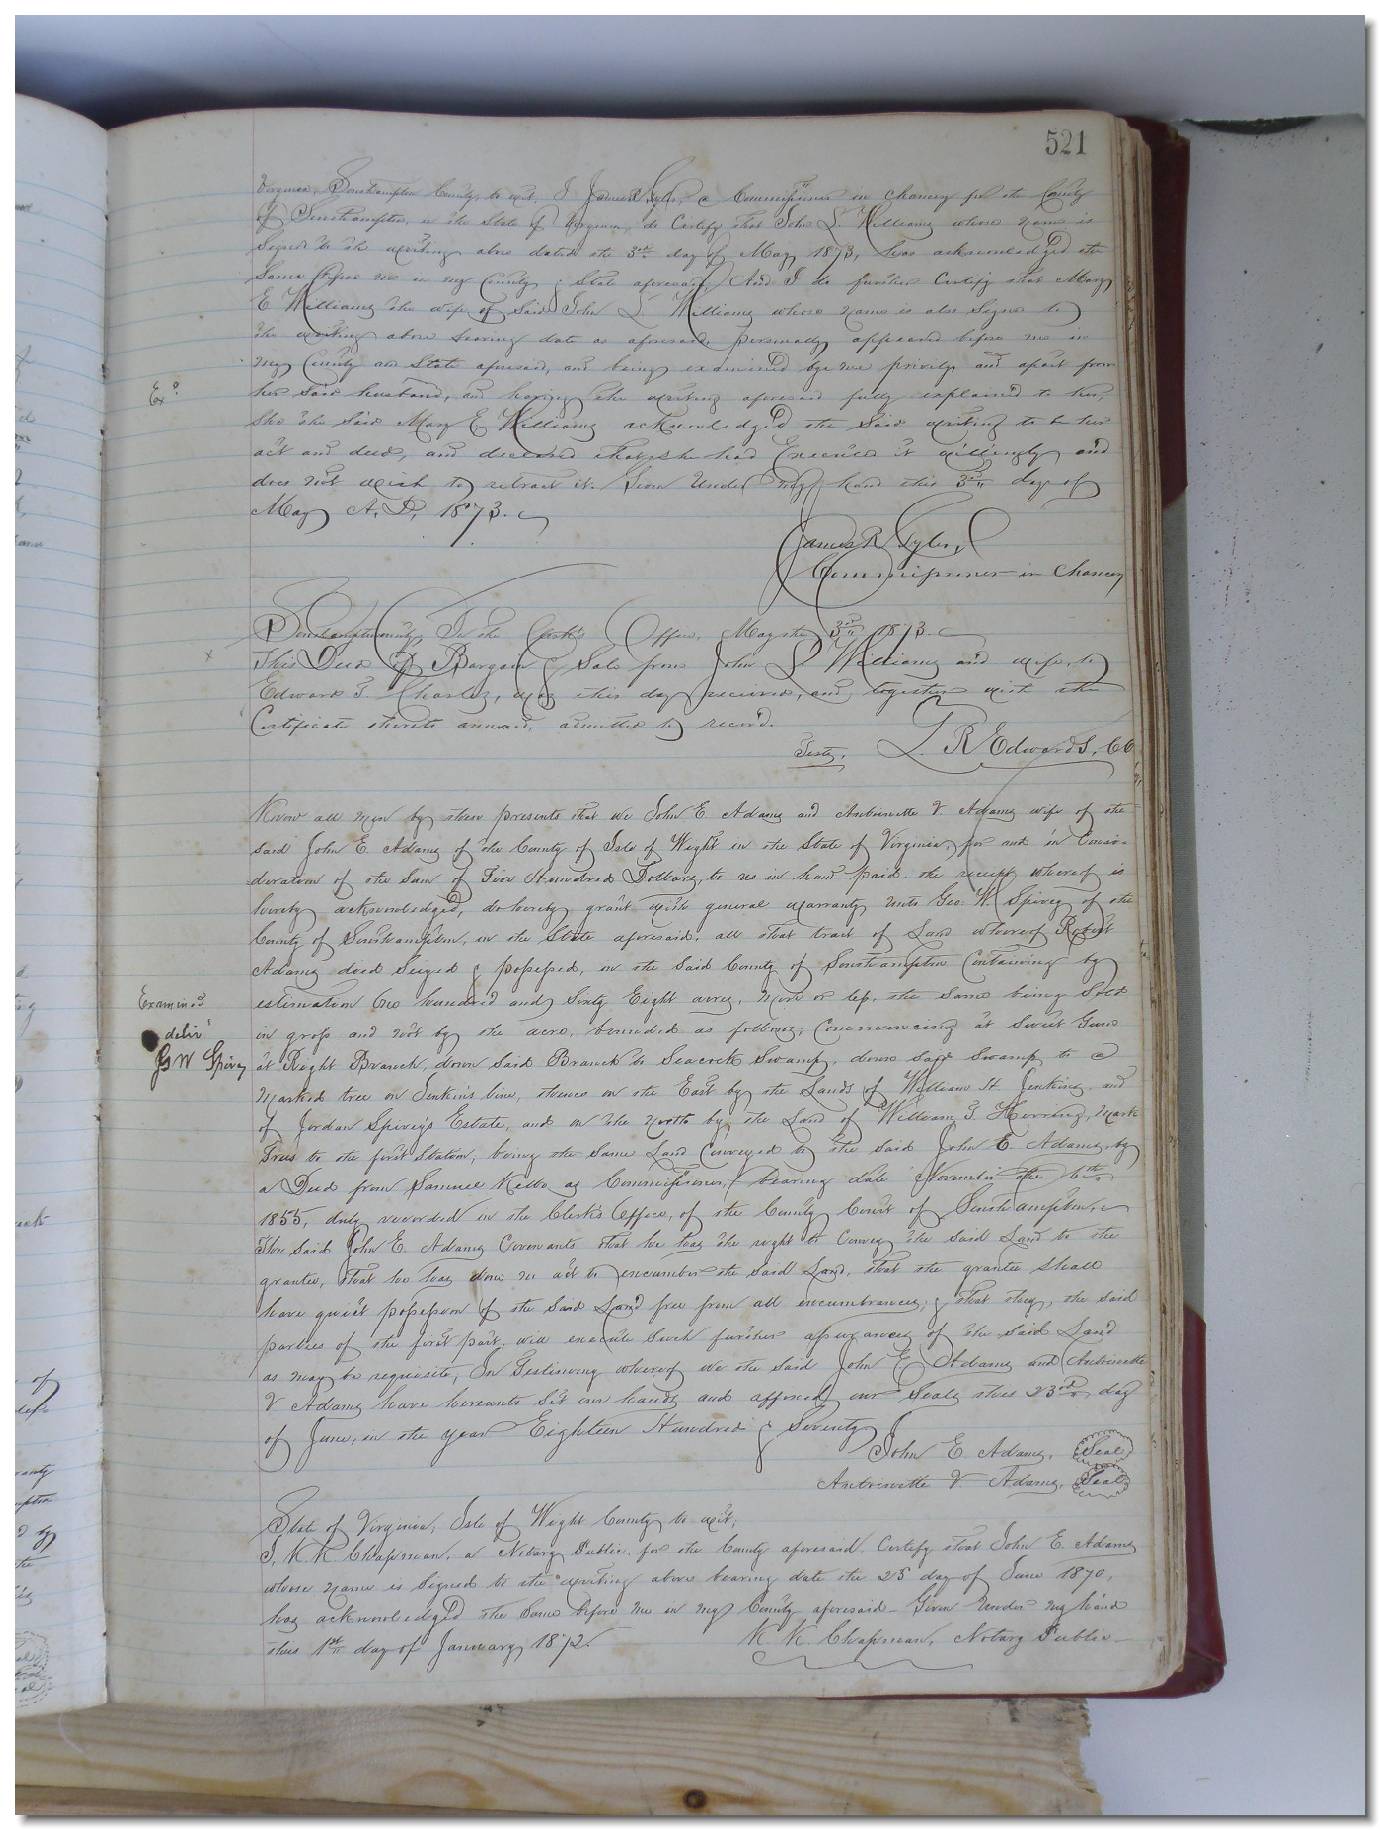 521
Virginia, Southampton County, to wit, I James R Tyler, a Commissioner in Chancery for the County
of Southampton, in the State of Virginia, do Certify that John L. Williams whose name is
Signed to the writing above dated the 3rd day of May 1873, has acknowledged the
Same before me in my County & State aforesaid, And I do further Certify that Mary
E Williams the wife of Said John L. Williams whose name is also Signed to
the writing above bearing date as aforesaid, personally appeared before me in
my County and State aforesaid, and being examined by me privily and apart from
Exd
her Said husband, and having the writing aforesaid fully explained to her,
She the Said Mary E. Williams acknowledged the Said writing to be her
act and deed, and declared that she had Executed it willingly and
does not wish to retract it. Given Under my hand this 3rd day of
May A.D. 1873.
James R Tyler,
Commissioner in Chancery
Southampton County, In the Clerk's Office, May the 3rd 1873.
x This Deed of Bargain & Sale from John L Williams and wife, to
Edward T. Charles, was this day received, and together with the
Certificate thereto annexed, admitted to record.
Teste, L. R Edwards, CC
Know all men by these presents that we John E. Adams and Antoinette V. Adams wife of the
said John E. Adams of the County of Isle of Wight in the State of Virginia, for and in Consi-
deration of the Sum of Five Hundred Dollars, to us in hand paid the receipt whereof is
hereby acknowledged, do hereby grant with general warranty unto Geo. W. Spivey of the
County of Southampton, in the State aforesaid, all that tract of Land whereof Robert
Adams died Seized & possessed, in the Said County of Southampton Containing by
Examined
estimation One hundred and Sixty Eight acres, more or less, the Same being Sold
delivd
in gross and not by the acre, bounded as follows; Commencing at Sweet Gum
G W Spivey
at Right Branch, down Said Branch to Seacock Swamp, down Said Swamp to a
Marked tree on Jenkins line, thence on the East by the Lands of William H. Jenkins, and
of Jordan Spivey's Estate, and on the North by the Land of William T. Herring, Mark
Trees to the first Station, being the Same Land Conveyed to the Said John E. Adams, by
a Deed from Samuel Kello as Commissioner, bearing date November the 6th
1855, duly recorded in the Clerk's Office, of the County Court of Southampton.
The Said John E. Adams Covenants that he has the right to Convey the Said Land to the
grantee, that he has done no act to encumber the Said Land, that the grantee Shall
have quiet possession of the Said Land free from all encumbrances; & that they, the Said
parties of the first part, will execute Such further assurances of the Said Land
as may be requisite, In Testimony whereof we the Said John E. Adams and Antoinette
V Adams have hereunto Set our hands and affixed our Seals this 23rd day
of June, in the year Eighteen Hundred & Seventy
John E. Adams, Seal
Antoinette V. Adams, Seal
State of Virginia, Isle of Wight County to wit;
I, K. K. Chapman, a Notary Public, for the County aforesaid Certify that John E. Adams
whose name is Signed to the writing above bearing date the 23 day of June 1870,
has acknowledged the Same before me in my County aforesaid - Given Under my hand
this 1st day of January 1872.
K. K. Chapman, Notary Public